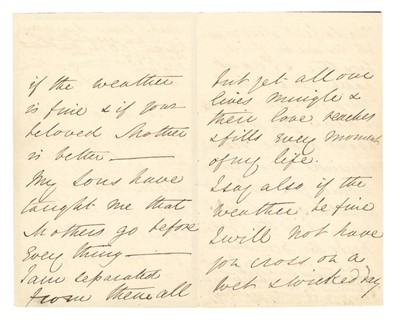 if the weather
is fine & if your
beloved Mother
is better —
My Sons have
taught me that
Mothers go before
Every thing —
I am separated
from them all
but yet all our
lives mingle &
their love reaches
& fills Every Moment
of my life.
I say also if the
weather be fine
I will not have
you cross on a
wet & wicked day